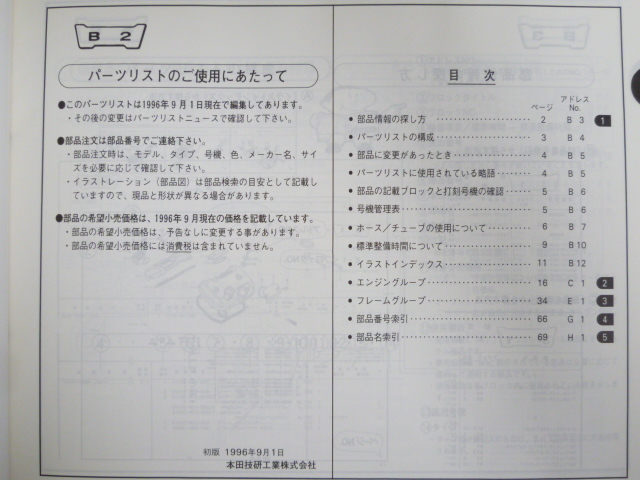 B 2
パーツリストのご使用にあたって
●このパーツリストは1996年9月1日現在で編集してあります。
・その後の変更はパーツリストニュースで確認して下さい。
●部品注文は部品番号でご連絡下さい。
・部品注文時は、モデル、タイプ、号機、色、メーカー名、サイ
ズを必要に応じて確認して下さい。
・イラストレーション（部品図）は部品検索の目安として記載し
ていますので、現品と形状が異なる場合があります。
●部品の希望小売価格は、1996年9月現在の価格を記載しています。
・部品の希望小売価格は、予告なしに変更する事があります。
・部品の希望小売価格には消費税は含まれていません。
初版 1996年9月1日
本田技研工業株式会社
目 次
ページ アドレスNo.
● 部品情報の探し方 ……………… 2 B 3 1
● パーツリストの構成 ……………… 3 B 4
● 部品に変更があったとき ……………… 4 B 5
● パーツリストに使用されている略語 ……………… 4 B 5
● 部品の記載ブロックと打刻号機の確認 ……………… 5 B 6
● 号機管理表 ……………… 5 B 6
● ホース／チューブの使用について ……………… 6 B 7
● 標準整備時間について ……………… 9 B 10
● イラストインデックス ……………… 11 B 12
● エンジングループ ……………… 16 C 1 2
● フレームグループ ……………… 34 E 1 3
● 部品番号索引 ……………… 66 G 1 4
● 部品名索引 ……………… 69 H 1 5